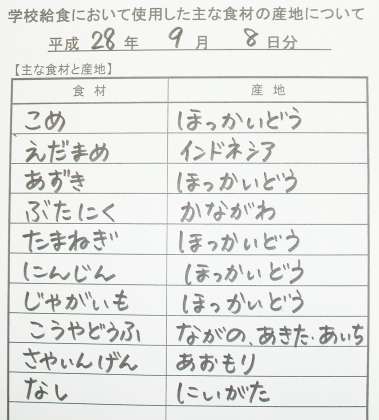 学校給食において使用した主な食材の産地について
平成 28 年 9 月 8 日分
【主な食材と産地】
食材 産地
こめ ほっかいどう
えだまめ インドネシア
あずき ほっかいどう
ぶたにく かながわ
たまねぎ ほっかいどう
にんじん ほっかいどう
じゃがいも ほっかいどう
こうやどうふ ながの、あきた・あいち
さやいんげん あおもり
なし にいがた